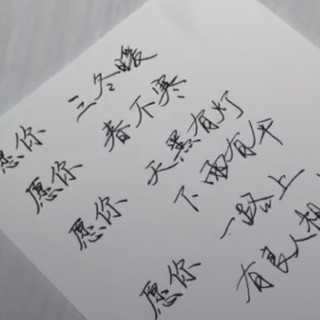 愿你 三冬暖
愿你 春不寒
愿你 天黑有灯
下雨有伞
愿你 一路上
有良人相